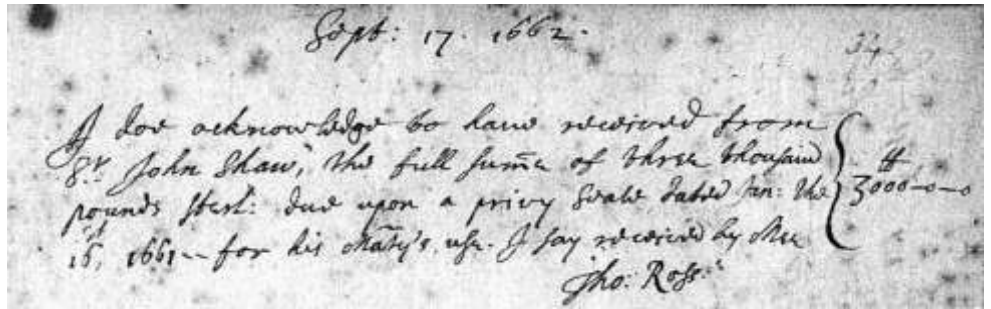 Sept: 17. 1662.
34
I doe acknowledge to have received from
Sr. John Shaw, the full sum̄e of three thousand
pounds sterl: due upon a privy Seale dated Jan: the
16, 1661-- for his Ma̅ty's use. I say received by Mee
₶
3000-0-0
Tho: Rosse